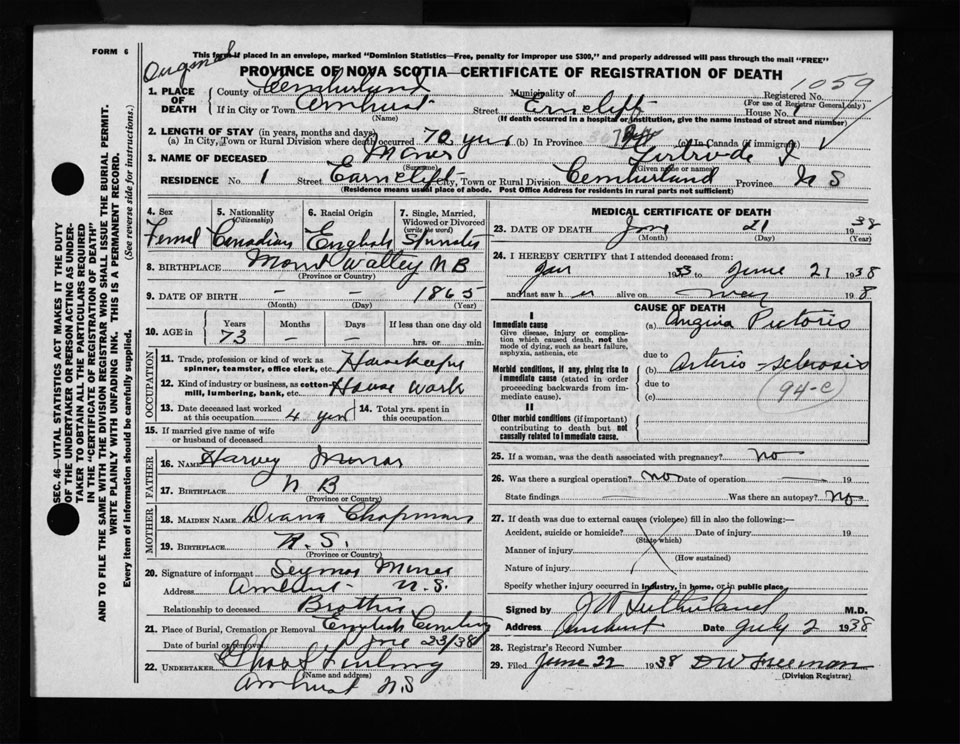 FORM 6
Original
This form if placed in an envelope, marked "Dominion Statistics—Free, penalty for improper use $300," and properly addressed will pass through the mail "FREE"
PROVINCE OF NOVA SCOTIA—CERTIFICATE OF REGISTRATION OF DEATH
1059
1. PLACE OF DEATH
County of Cumberland Municipality of Registered No.
(For use of Registrar General only)
If in City or Town Amherst Street Erncliffe House No. 1
(Name) (If death occurred in a hospital or institution, give the name instead of street and number)
2. LENGTH OF STAY (in years, months and days)
(a) In City, Town or Rural Division where death occurred 70 yrs (b) In Province (c) In Canada (if immigrant)
3. NAME OF DECEASED Gertrude I
(Surname) (Given name or names)
RESIDENCE No. 1 Street Earncliffe City, Town or Rural Division Cumberland Province N S
(Residence means usual place of abode. Post Office Address for residents in rural parts not sufficient)
4. Sex 5. Nationality (Citizenship) 6. Racial Origin 7. Single, Married, Widowed or Divorced (write the word)
Femal Canadian English Spinster
8. BIRTHPLACE N B
(Province or Country)
9. DATE OF BIRTH – – 1865
(Month) (Day) (Year)
10. AGE in Years Months Days If less than one day old
73 – – hrs. or min.
OCCUPATION
11. Trade, profession or kind of work as spinner, teamster, office clerk, etc. Housekeeper
12. Kind of industry or business, as cotton mill, lumbering, bank, etc. House Work
13. Date deceased last worked at this occupation 4 yrs 14. Total yrs. spent in this occupation
15. If married give name of wife or husband of deceased
FATHER
16. NAME Harvey
17. BIRTHPLACE N B
(Province or Country)
MOTHER
18. MAIDEN NAME Diana Chapman
19. BIRTHPLACE N.S.
(Province or Country)
20. Signature of informant Seymor
Address Amherst N.S.
Relationship to deceased Brother
21. Place of Burial, Cremation or Removal English Cemetery
Date of burial or removal June 23/38
22. UNDERTAKER
(Name and address)
Amherst N S
MEDICAL CERTIFICATE OF DEATH
23. DATE OF DEATH June 21 1938
(Month) (Day) (Year)
24. I HEREBY CERTIFY that I attended deceased from:
Jan 1933 to June 21 1938
and last saw her alive on May 1938
CAUSE OF DEATH
I
Immediate cause
Give disease, injury or complication which caused death, not the mode of dying, such as heart failure, asphyxia, asthenia, etc
(a) Angina Pectoris
due to
Morbid conditions, if any, giving rise to immediate cause (stated in order proceeding backwards from immediate cause).
(b) Arterio-sclrosis
due to
(c) 94-c
II
Other morbid conditions (if important) contributing to death but not causally related to immediate cause.
25. If a woman, was the death associated with pregnancy? no
26. Was there a surgical operation? no Date of operation 19
State findings Was there an autopsy? no
27. If death was due to external causes (violence) fill in also the following:—
Accident, suicide or homicide? Date of injury 19
(State which)
Manner of injury
(How sustained)
Nature of injury
Specify whether injury occurred in industry, in home, or in public place
Signed by J W Sutherland M.D.
Address Amherst Date July 2 1938
28. Registrar's Record Number
29. Filed June 22 1938 D W Freeman
(Division Registrar)
SEC. 46—VITAL STATISTICS ACT MAKES IT THE DUTY
OF THE UNDERTAKER OR PERSON ACTING AS UNDER-
TAKER TO OBTAIN ALL THE PARTICULARS REQUIRED
IN THE "CERTIFICATE OF REGISTRATION OF DEATH"
AND TO FILE THE SAME WITH THE DIVISION REGISTRAR WHO SHALL ISSUE THE BURIAL PERMIT.
WRITE PLAINLY WITH UNFADING INK. THIS IS A PERMANENT RECORD.
Every item of information should be carefully supplied. (See reverse side for instructions.)